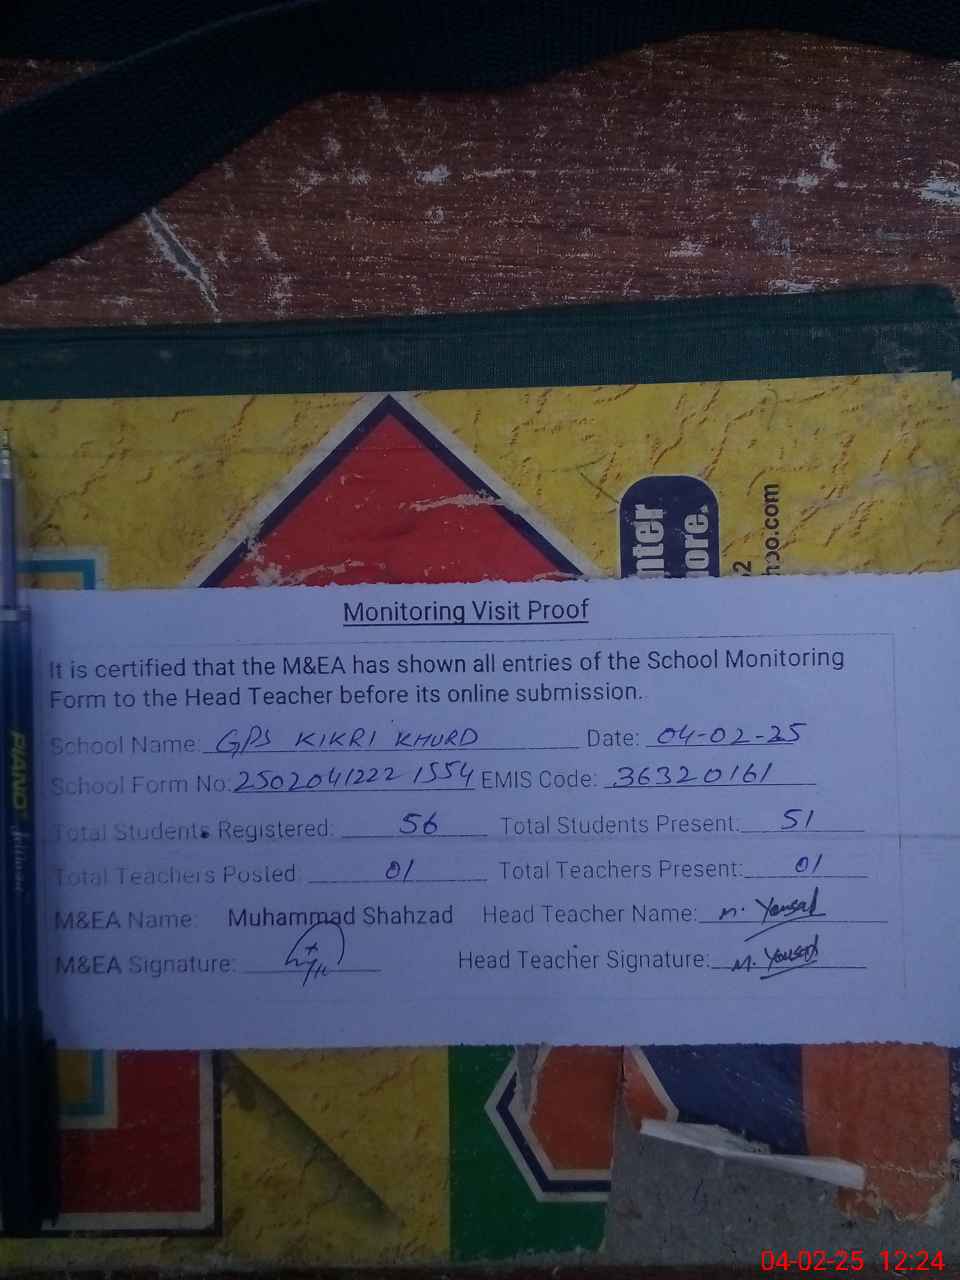 nter
ore.
52
hoo.com
Monitoring Visit Proof
It is certified that the M&EA has shown all entries of the School Monitoring
Form to the Head Teacher before its online submission.
School Name: GPS KIKRI KHURD Date: 04-02-25
School Form No: 25020412221554 EMIS Code: 36320161
Total Students Registered: 56 Total Students Present: 51
Total Teachers Posted: 01 Total Teachers Present: 01
M&EA Name: Muhammad Shahzad Head Teacher Name: M. Yousaf
M&EA Signature: Head Teacher Signature: M. Yousaf
PIANO
04-02-25 12:24